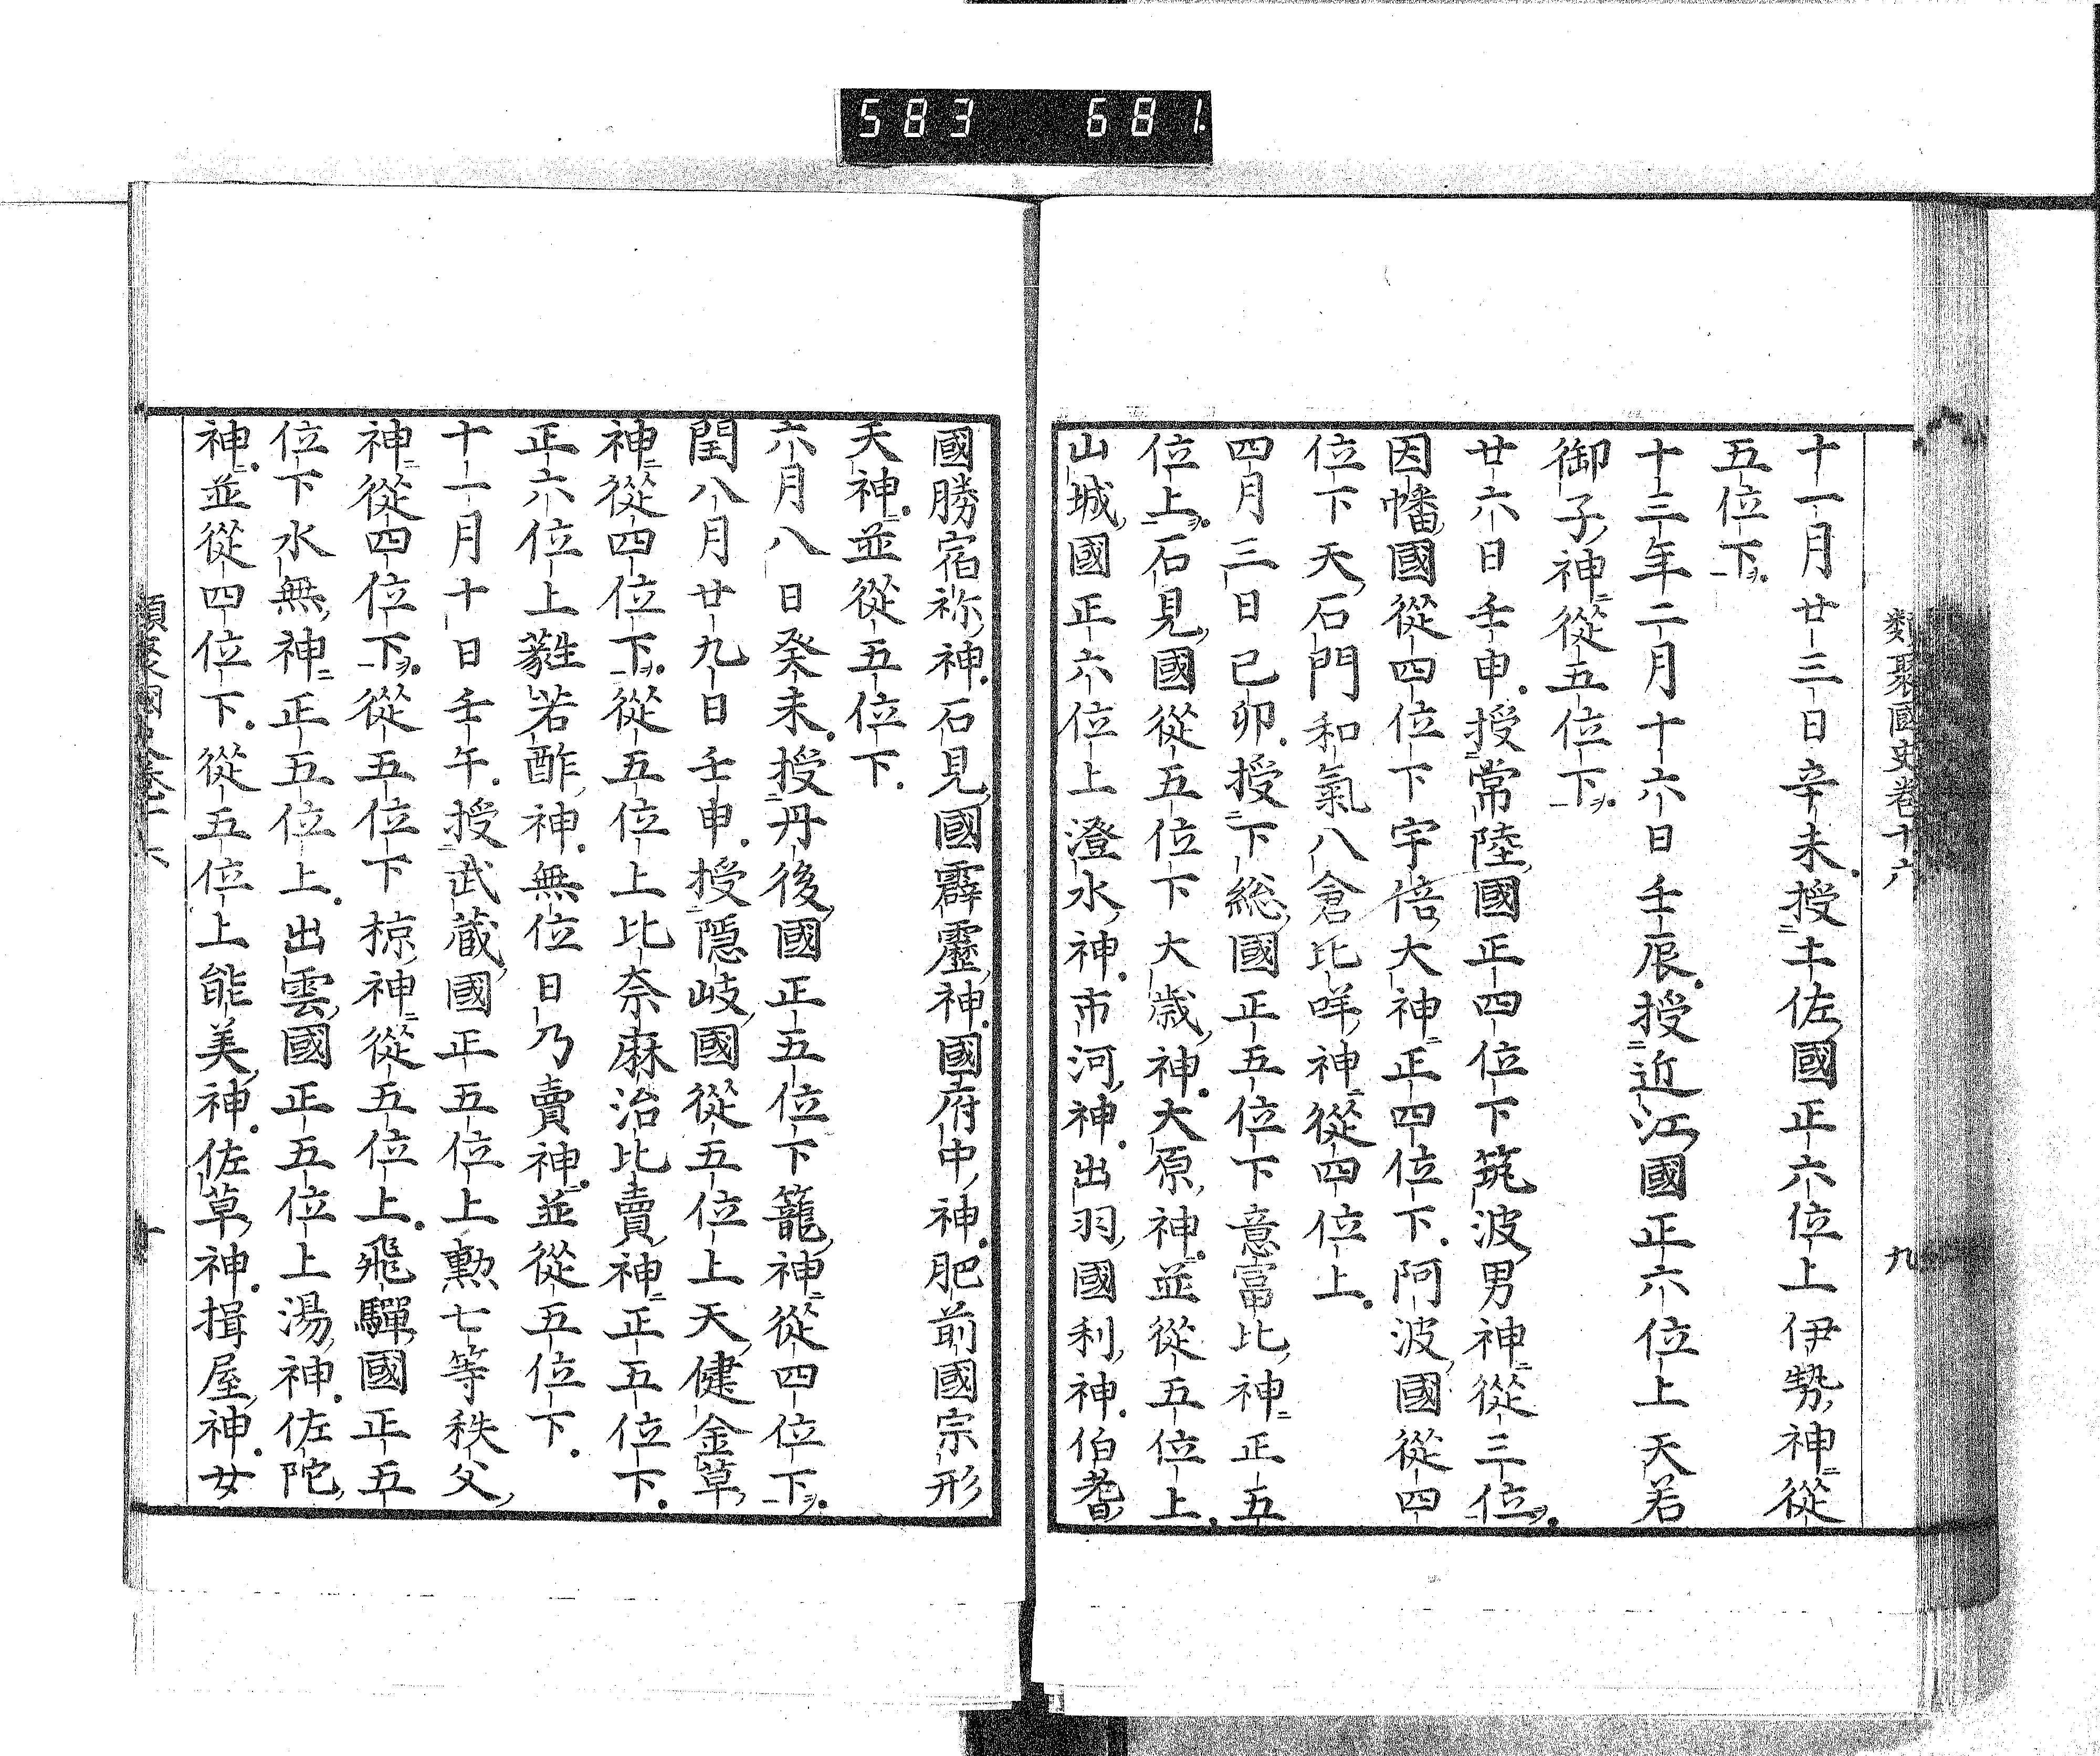 583 681.
類聚國史卷十六
九
十一月廿三日辛未授土佐國正六位上伊勢神從
五位下
十三年二月十六日壬辰授近江國正六位上天若
御子神從五位下
廿六日壬申授常陸國正四位下筑波男神從三位
因幡國從四位下宇倍大神正四位下阿波國從四
位下天石門和氣八倉比咩神從四位上
四月三日己卯授下總國正五位下意富比神正五
位上石見國從五位下大歲神大原神並從五位上
山城國正六位上澄水神市河神出羽國利神伯耆
國勝宿祢神石見國霹靂神國府中神肥前國宗形
天神並從五位下
六月八日癸未授丹後國正五位下籠神從四位下
閏八月廿九日壬申授隱岐國從五位上天健金草
神從四位下從五位上比奈麻治比賣神正五位下
正六位上蘳若酢神無位日乃賣神並從五位下
十一月十日壬午授武藏國正五位上勲七等秩父
神從四位下從五位下椋神從五位上飛驒國正五
位下水無神正五位上出雲國正五位上湯神佐陀
神並從四位下從五位上能美神佐草神揖屋神女
類聚國史卷十六
十